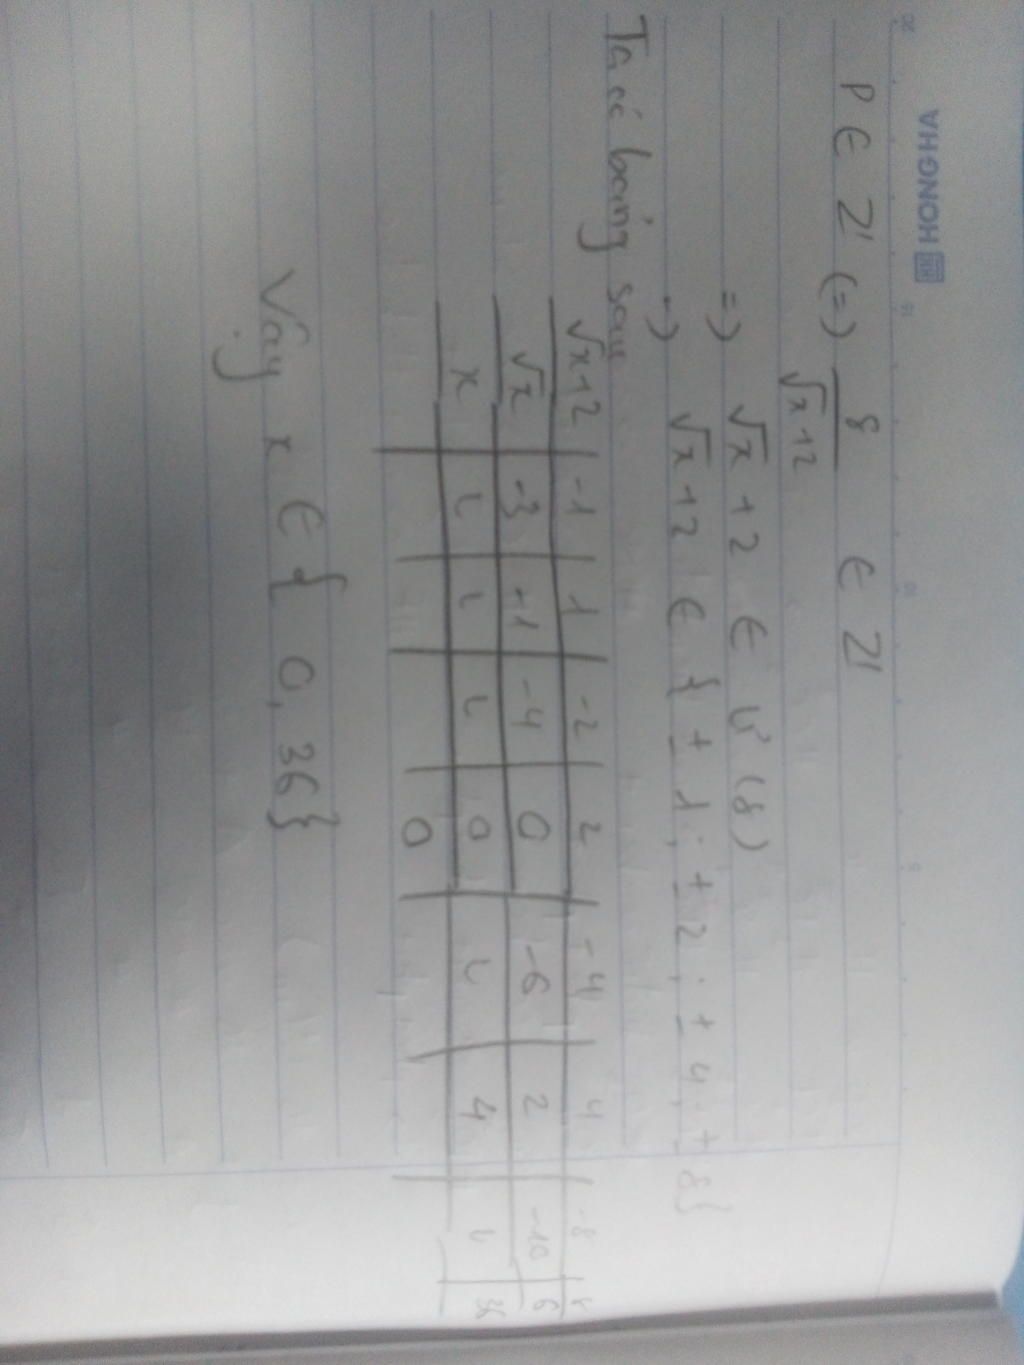 HONG HA
20 15 10 5 0
P ∈ Z (=) 8/(√x+2) ∈ Z
=) √x + 2 ∈ Ư (8)
=) √x + 2 ∈ { ± 1; ± 2; ± 4; ± 8}
Ta có bảng sau
√x+2 | -1 | 1 | -2 | 2 | -4 | 4 | -8 | 8
√x | -3 | -1 | -4 | 0 | -6 | 2 | -10 | 6
x | L | L | L | 0 | L | 4 | L | 36
0
Vậy x ∈ { 0, 36}